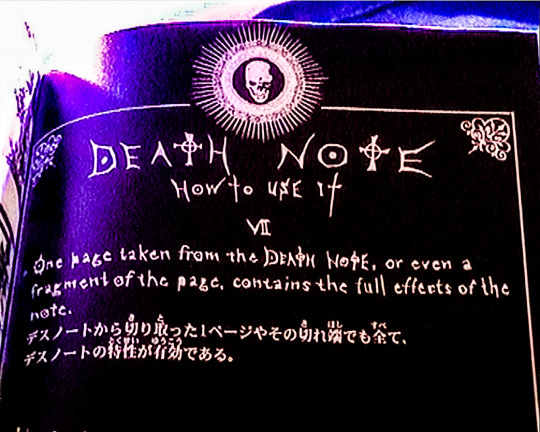 DEATH NOTE
HOW to USE It
VII
• One page taken from the DEATH NOTE, or even a
fragment of the page, contains the full effects of the
note.
デスノートから切り取った1ページやその切れ端でも全て、
デスノートの特性が有効である。